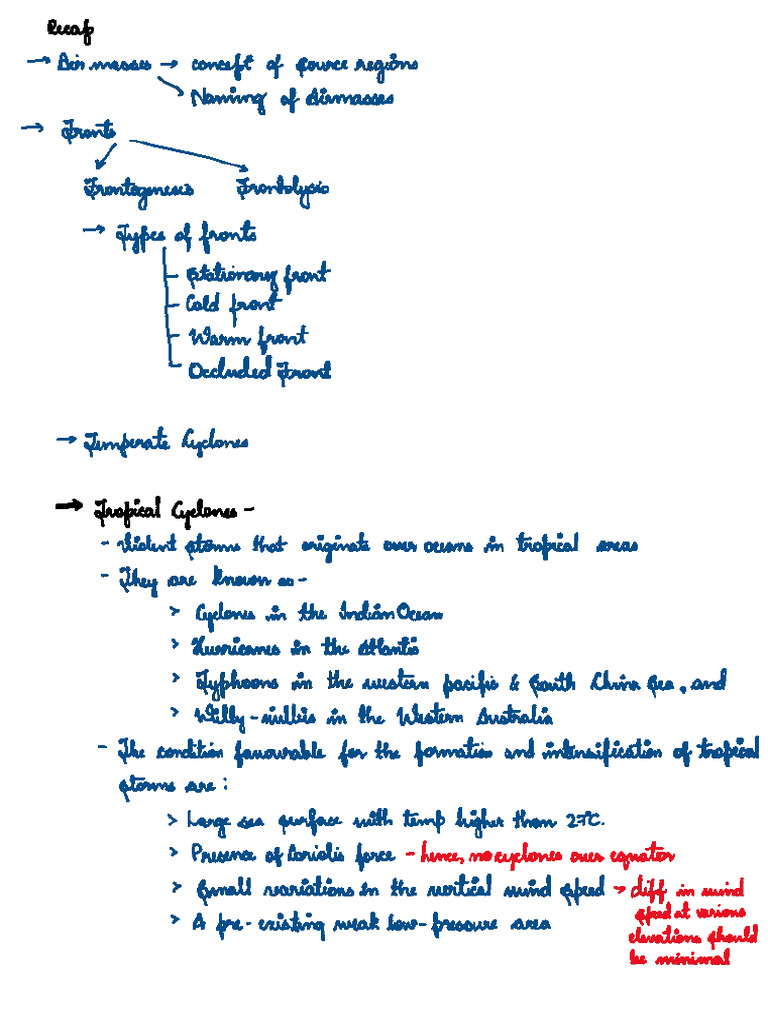 Recap
→ Air masses → concept of source regions
Naming of Airmasses
→ Fronts
Frontogenesis Frontolysis
→ Types of fronts
- Stationary front
- Cold front
- Warm front
- Occluded Front
→ Temperate Cyclones
→ Tropical Cyclones -
- Violent storms that originate over oceans in tropical areas
- They are known as -
> Cyclones in the Indian Ocean
> Hurricanes in the Atlantic
> Typhoons in the western pacific & South China Sea, and
> Willy-willies in the Western Australia
- The condition favourable for the formation and intensification of tropical
storms are :
> Large sea surface with temp higher than 27°C.
> Presence of Coriolis force - hence, no cyclones over equator
> Small variations in the vertical wind speed → diff in wind
speed at various
> A pre-existing weak low-pressure area
elevations should
be minimal